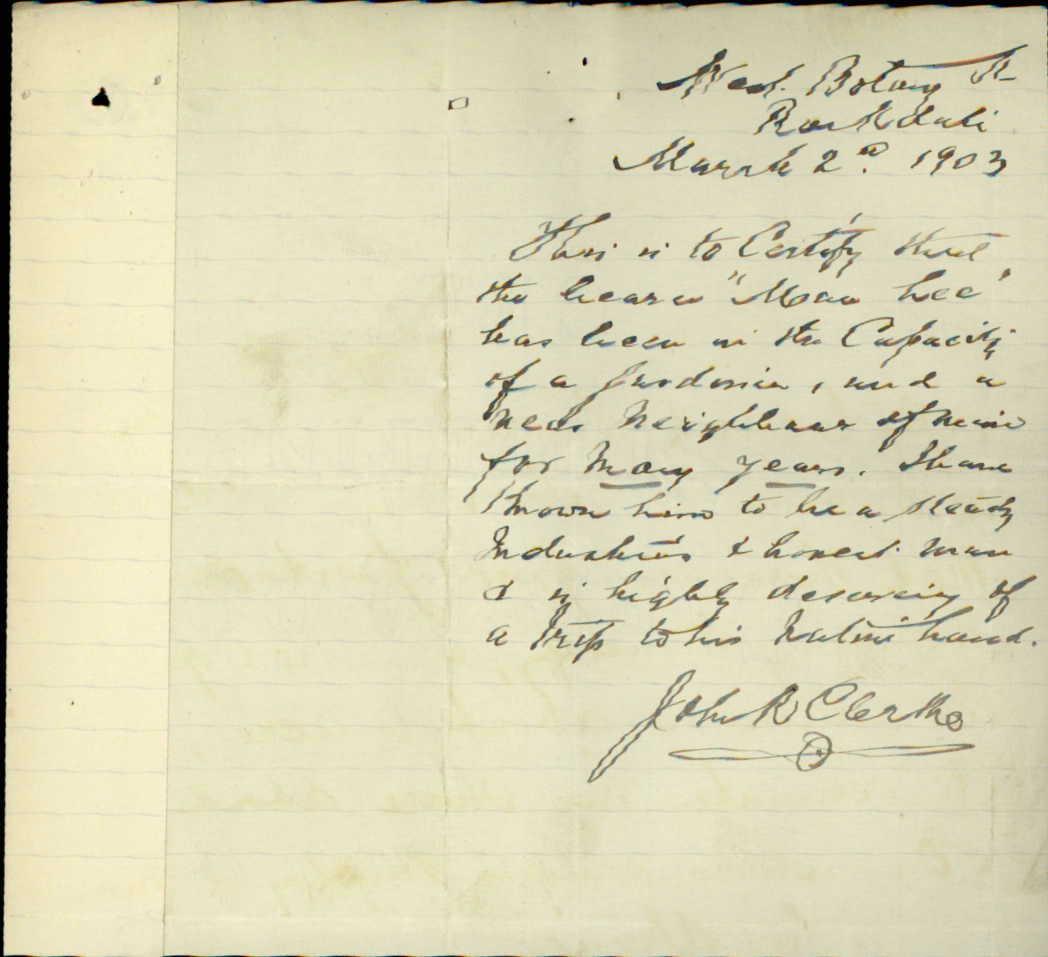 West Botany St
Rockdale
March 2nd. 1903
This is to Certify that
the bearer "Mow Lee"
has been in the Capacity
of a Gardener, and a
near Neighbour of mine
for Many years. I have
Known him to be a steady
Industrious & honest man
& is highly deserving of
a trip to his Native Land.
John R Clerke